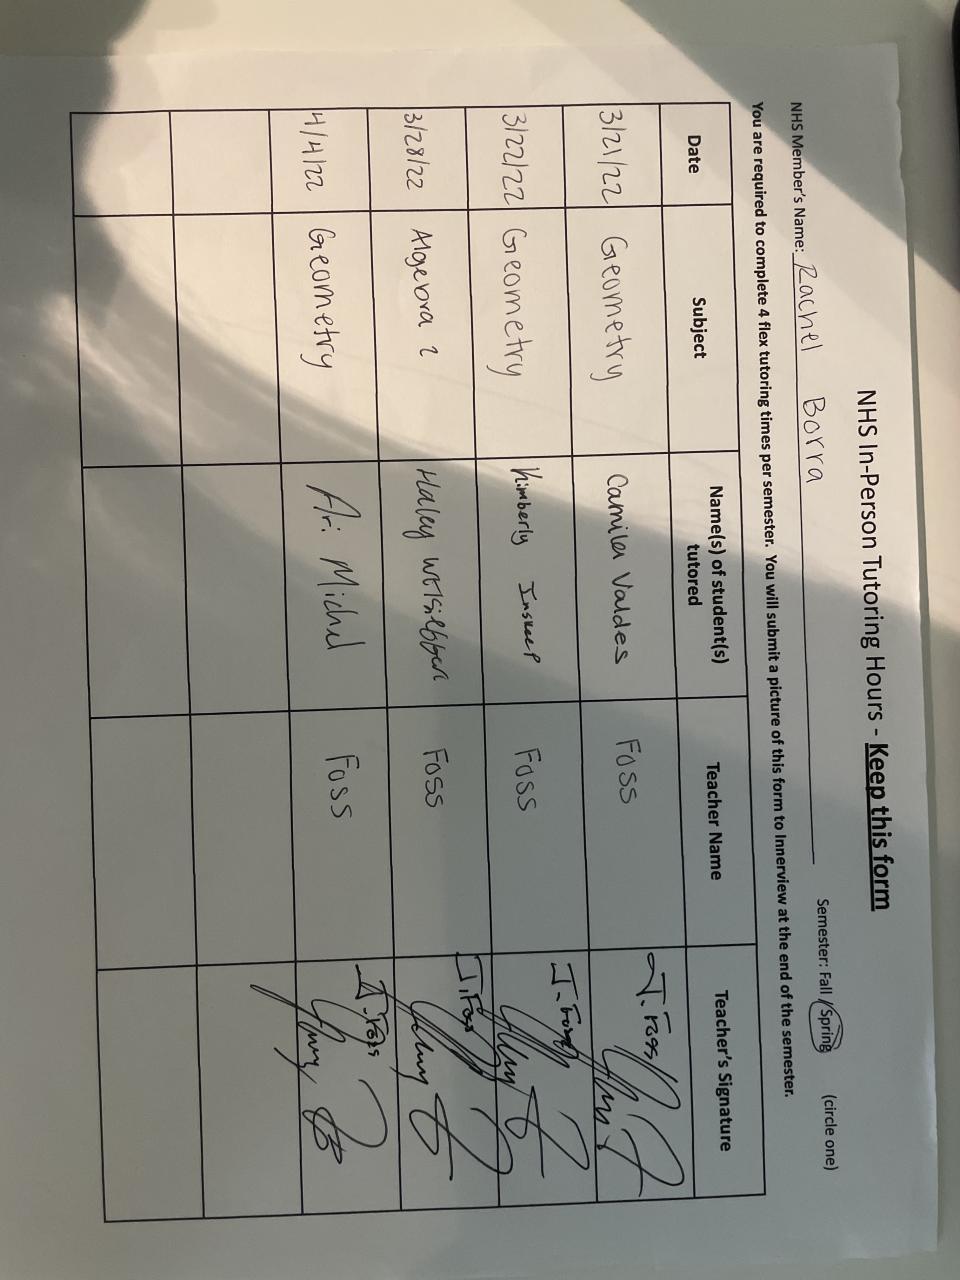 NHS In-Person Tutoring Hours - Keep this form
NHS Member's Name: Rachel Borra Semester: Fall / Spring (circle one)
You are required to complete 4 flex tutoring times per semester. You will submit a picture of this form to Innerview at the end of the semester.
Date Subject Name(s) of student(s) tutored Teacher Name Teacher's Signature
3/21/22 Geometry Camila Valdes Foss J. Foss
3/22/22 Geometry Kimberly Inskeep Foss J. Foss
3/28/22 Algebra 2 Haley Foss J. Foss
4/4/22 Geometry Ari Michel Foss J. Foss